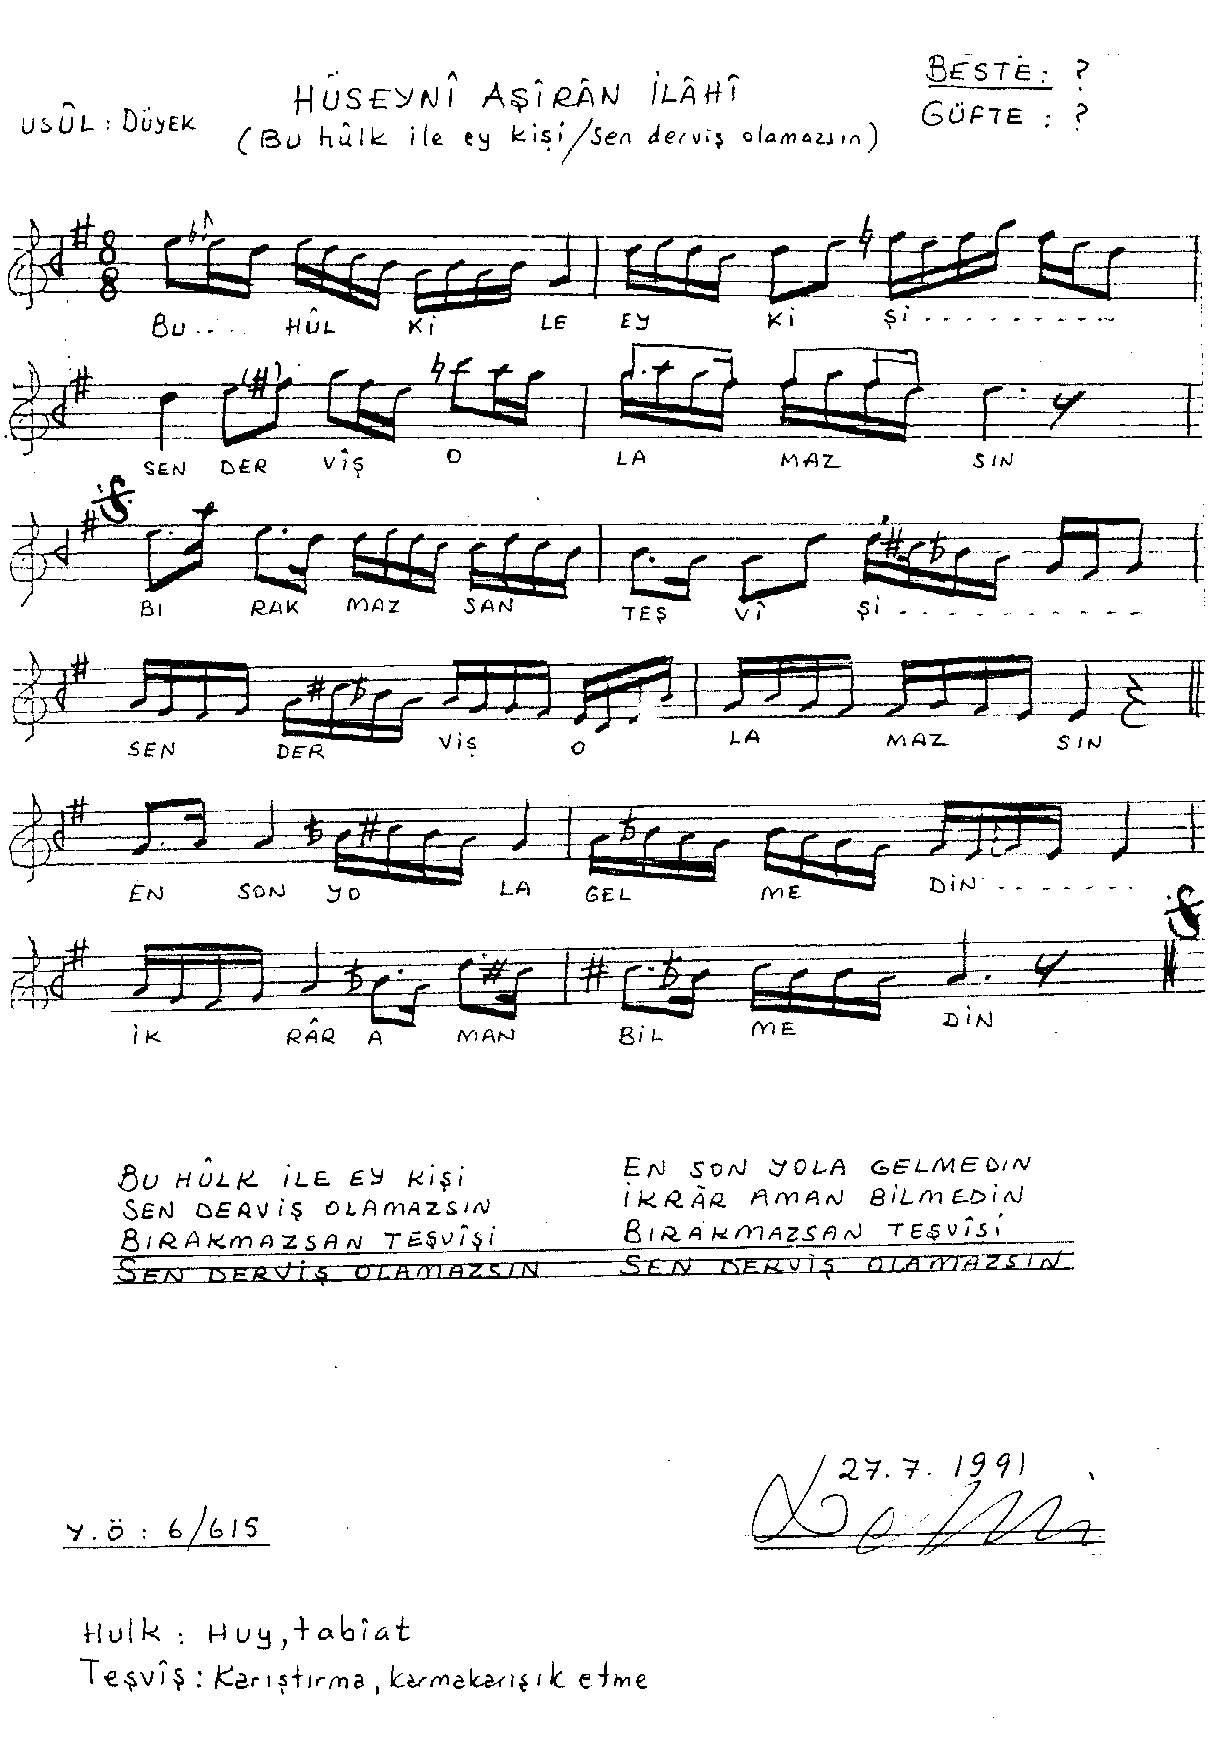 BESTE : ?
HÜSEYNÎ AŞÎRÂN İLÂHÎ
USÛL : DÜYEK
GÜFTE : ?
(Bu hûlk ile ey kişi/Sen derviş olamazsın)
8
8
BU.... HÛL Kİ LE EY Kİ Şİ..........
SEN DER VÎŞ O LA MAZ SIN
BI RAK MAZ SAN TEŞ VÎ Şİ..........
SEN DER VİŞ O LA MAZ SIN
EN SON YO LA GEL ME DİN.......
İK RÂR A MAN BİL ME DİN
BU HÛLK İLE EY KİŞİ
SEN DERVİŞ OLAMAZSIN
BIRAKMAZSAN TEŞVÎŞİ
SEN DERVİŞ OLAMAZSIN
EN SON YOLA GELMEDIN
İKRÂR AMAN BİLMEDİN
BIRAKMAZSAN TEŞVÎSİ
SEN DERVİŞ OLAMAZSIN
27.7.1991
Y.Ö : 6/615
Hulk : Huy, tabîat
Teşvîş : Karıştırma, karmakarışık etme